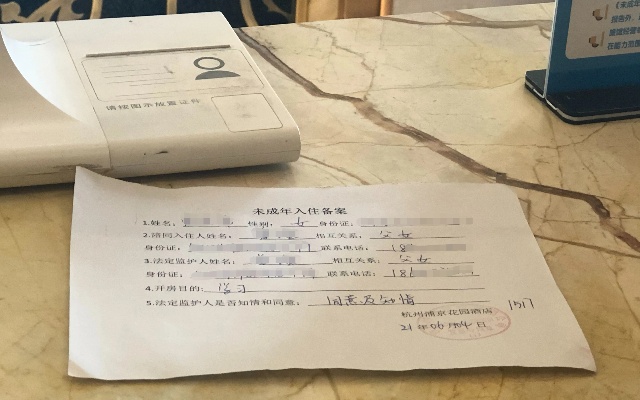 《未成年
在能力范围
请按图示放置证件
未成年入住备案
1.姓名： 性别： 女 身份证：
2.陪同入住人姓名： 相互关系： 父女
身份证： 联系电话： 18
3.法定监护人姓名： 相互关系： 父女
身份证： 联系电话： 18
4.开房目的： 学习
5.法定监护人是否知情和同意： 同意及知情
杭州浦京花园酒店
21 年 06 月 04 日